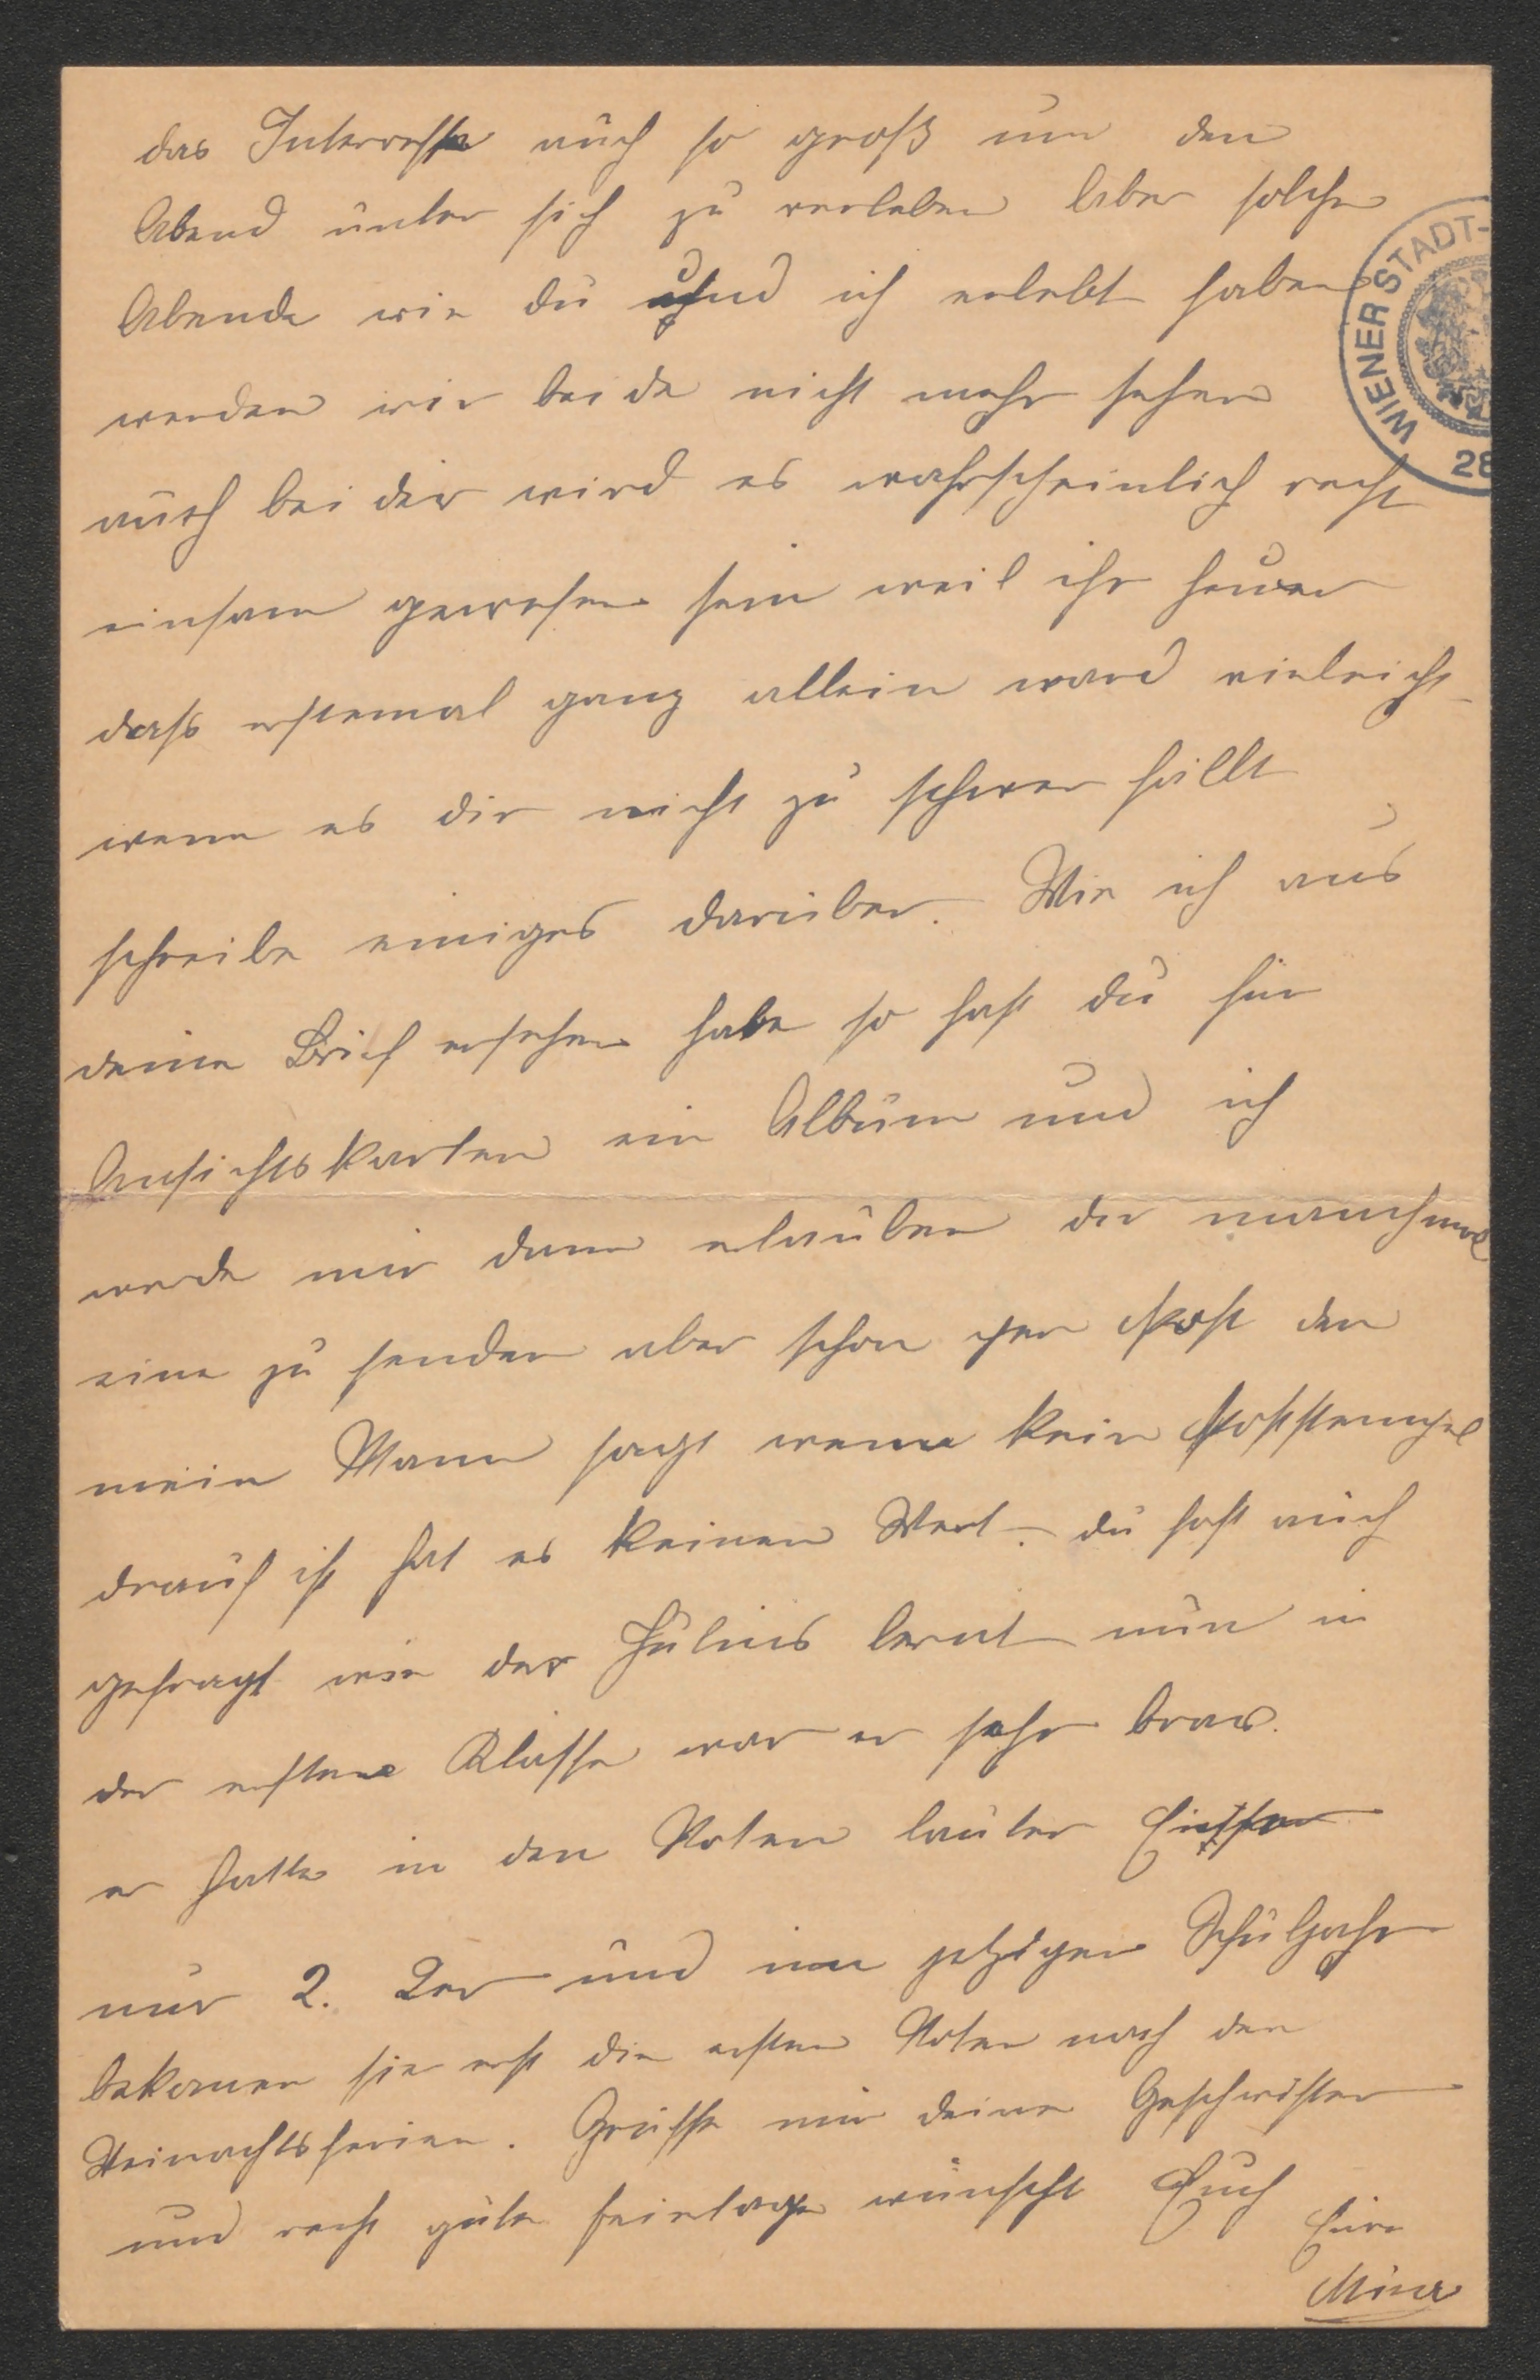 das Interesse auch so groß um den
Abend unter sich zu verleben Aber solche
Abende wie du und ich erlebt haben
werden wir beide nicht mehr sehen
auch bei dir wird es wahrscheinlich recht
einsam gewesen sein weil ihr heuer
dass erstemal ganz allein ward vieleicht
wenn es dir nicht zu schwer fällt
schreibe einiges darüber. Wie ich aus
deine Brief ersehen habe so hast du für
Ansichtskarten ein Album und ich
werde mir dann erlauben dir manchmal
eine zu senden aber schon per Post den
mein Mann sagt wenn kein Poststempel
drauf ist hat es keinen Wert. du hast mich
gefragt wie der Julius lernt nun in
der ersten Klasse war er sehr brav.
er hatte in den Noten lauter Einser
nur 2. 2er und im jetzigen Schuljahr
bekomen sie erst die ersten Noten nach den
Weinachtsferien. Grüsse mir deine Geschwister
und recht gute feiertage wünscht Euch
Eure
Mina
WIENER STADT-
28